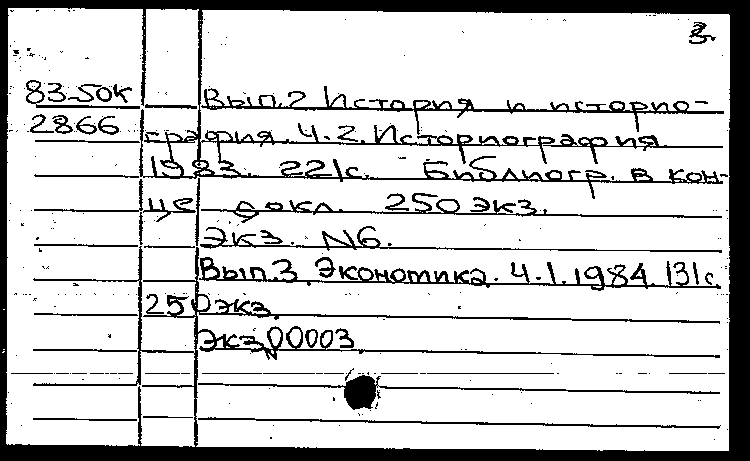 2.
83-50к Вып.2 История и историо-
2866 графия. Ч.2. Историография.
1983. 221с. Библиогр. в кон-
це докл. 250 экз.
Экз. N6.
Вып.3. Экономика. Ч.1.1984. 131с.
250экз.
Экз.N00003.